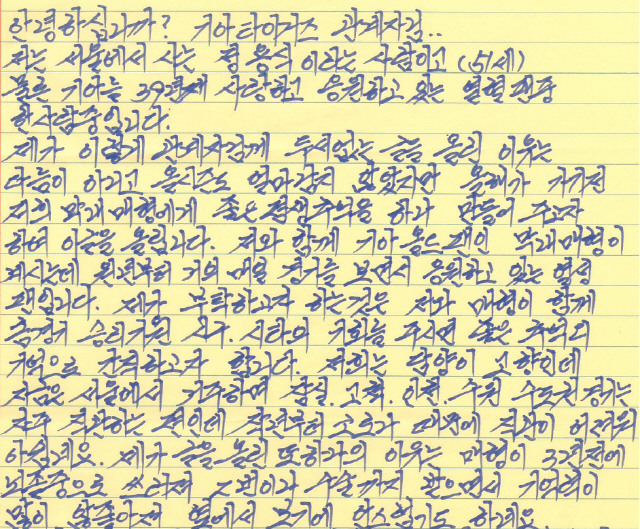 안녕하십니까? 기아타이거즈 관계자님..
저는 서울에서 사는 정용식 이라는 사람이고 (51세)
물론 기아를 39년째 사랑하고 응원하고 있는 열혈팬중
한사람중입니다.
제가 이렇게 관계자님께 두서없는 글을 올린 이유는
다름이 아니고 올시즌도 얼마남지 않았지만 올해가 가기전
저의 막내매형에게 좋은 추억을 하나 만들어 주고자
하여 이글을 올립니다. 저와 함께 기아 올드팬인 막내매형이
계시는데 원년부터 거의 매일 경기를 보면서 응원하고 있는 열성
팬입니다. 제가 부탁하고자 하는것은 저와 매형이 함께
홈경기 승리기원 시구.시타의 기회를 주시면 좋은 추억의
기억으로 간직하고자 합니다. 저희는 담양이 고향인데
지금은 서울에서 거주하며 잠실.고척.인천.수원 수도권 경기는
자주 직관하는 편인데 작년부터 코로나 때문에 직관이 어려워
아쉽네요. 제가 글을 올린 또하나의 이유는 매형이 32년전에
뇌졸중으로 쓰러져 2번이나 수술까지 받으면서 기억력이
많이 안좋아져 옆에서 보기에 안스럽기도 하네요